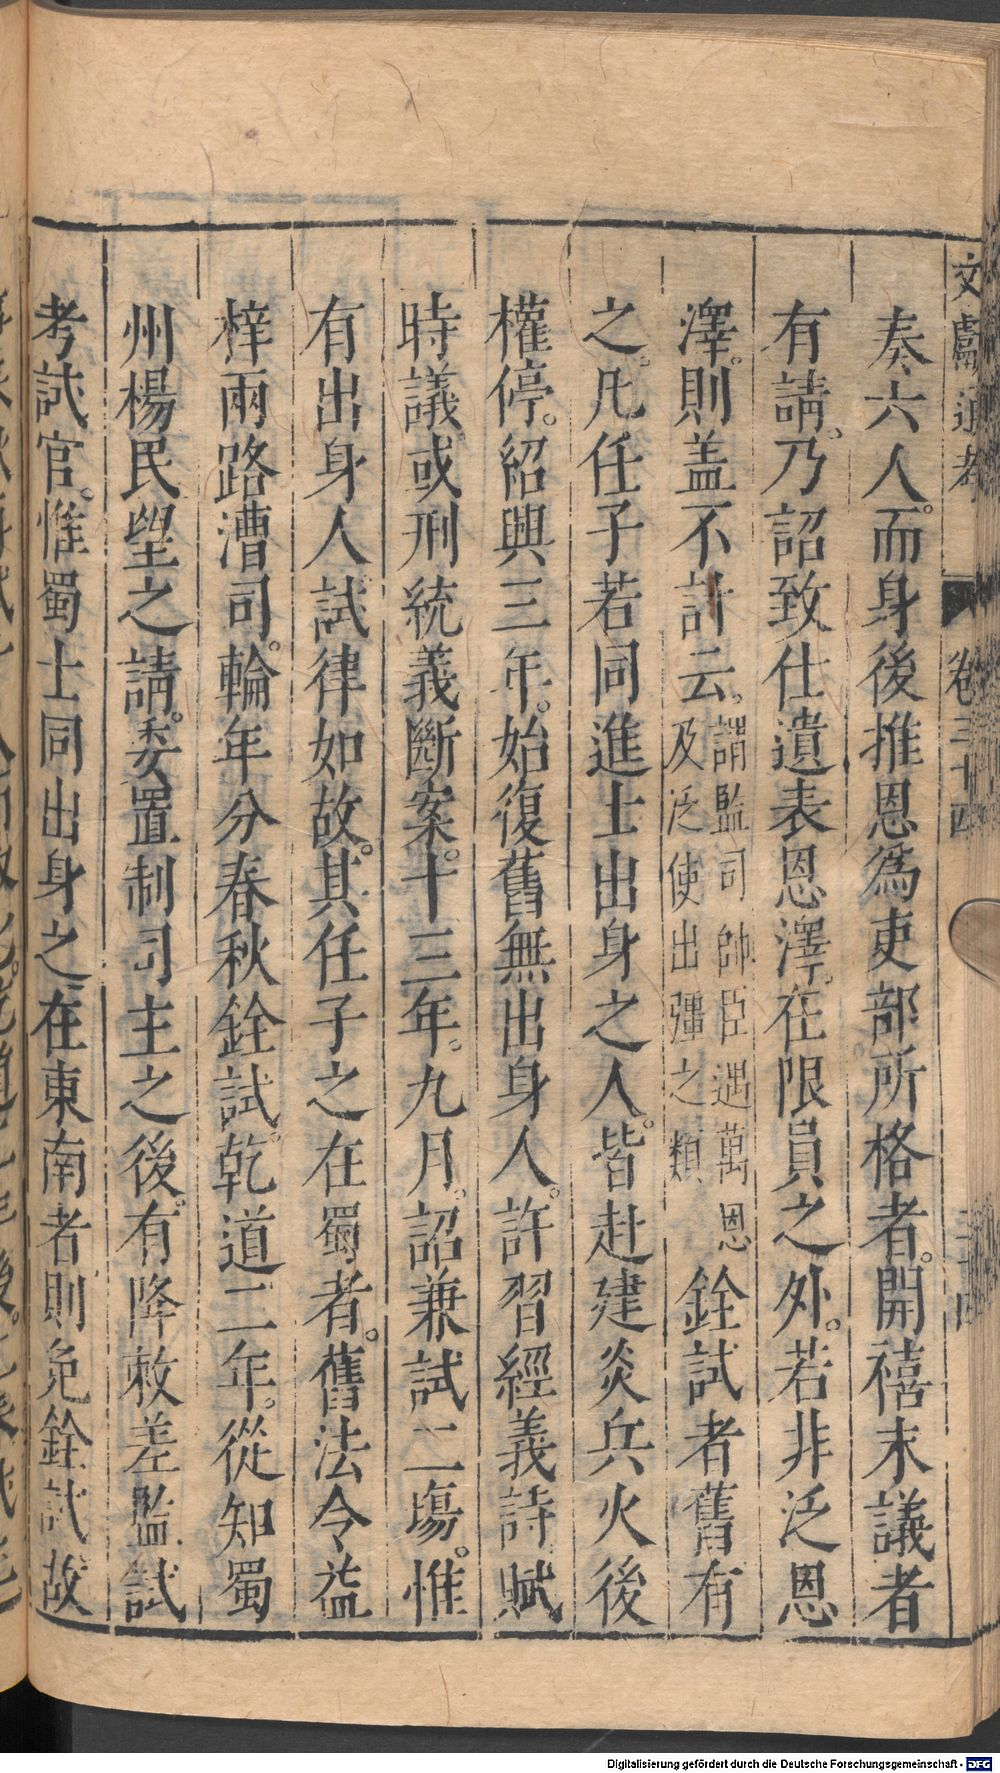 文獻通考 卷三十四
奏六人。而身後推恩爲吏部所格者。開禧末議者
有請。乃詔致仕遺表恩澤。在限員之外。若非泛恩
澤。則盖不計云。謂監司帥臣遇萬恩及泛使出彊之類 銓試者舊有
之。凡任子若同進士出身之人。皆赴建炎兵火後
權停。紹興三年。始復舊無出身人。許習經義詩賦
時議或刑統義斷案。十三年。九月。詔兼試二場。惟
有出身人試律如故。其任子之在蜀者。舊法令益
梓兩路漕司。輪年分春秋銓試。乾道二年。從知蜀
州楊民望之請。委置制司主之後。有降敕差監試
考試官。惟蜀士同出身之在東南者則免銓試故
Digitalisierung gefördert durch die Deutsche Forschungsgemeinschaft - DFG